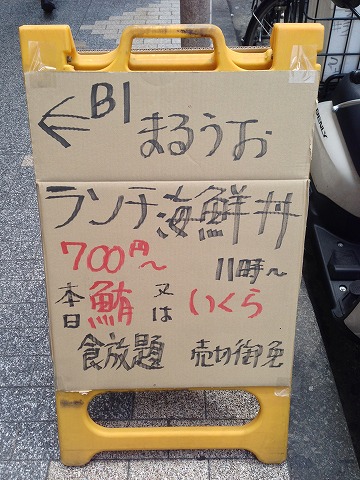 ← B1
まるうお
ランチ海鮮丼
700円〜
11時〜
本日 鮪 又は いくら
食放題 売切御免
BENLY